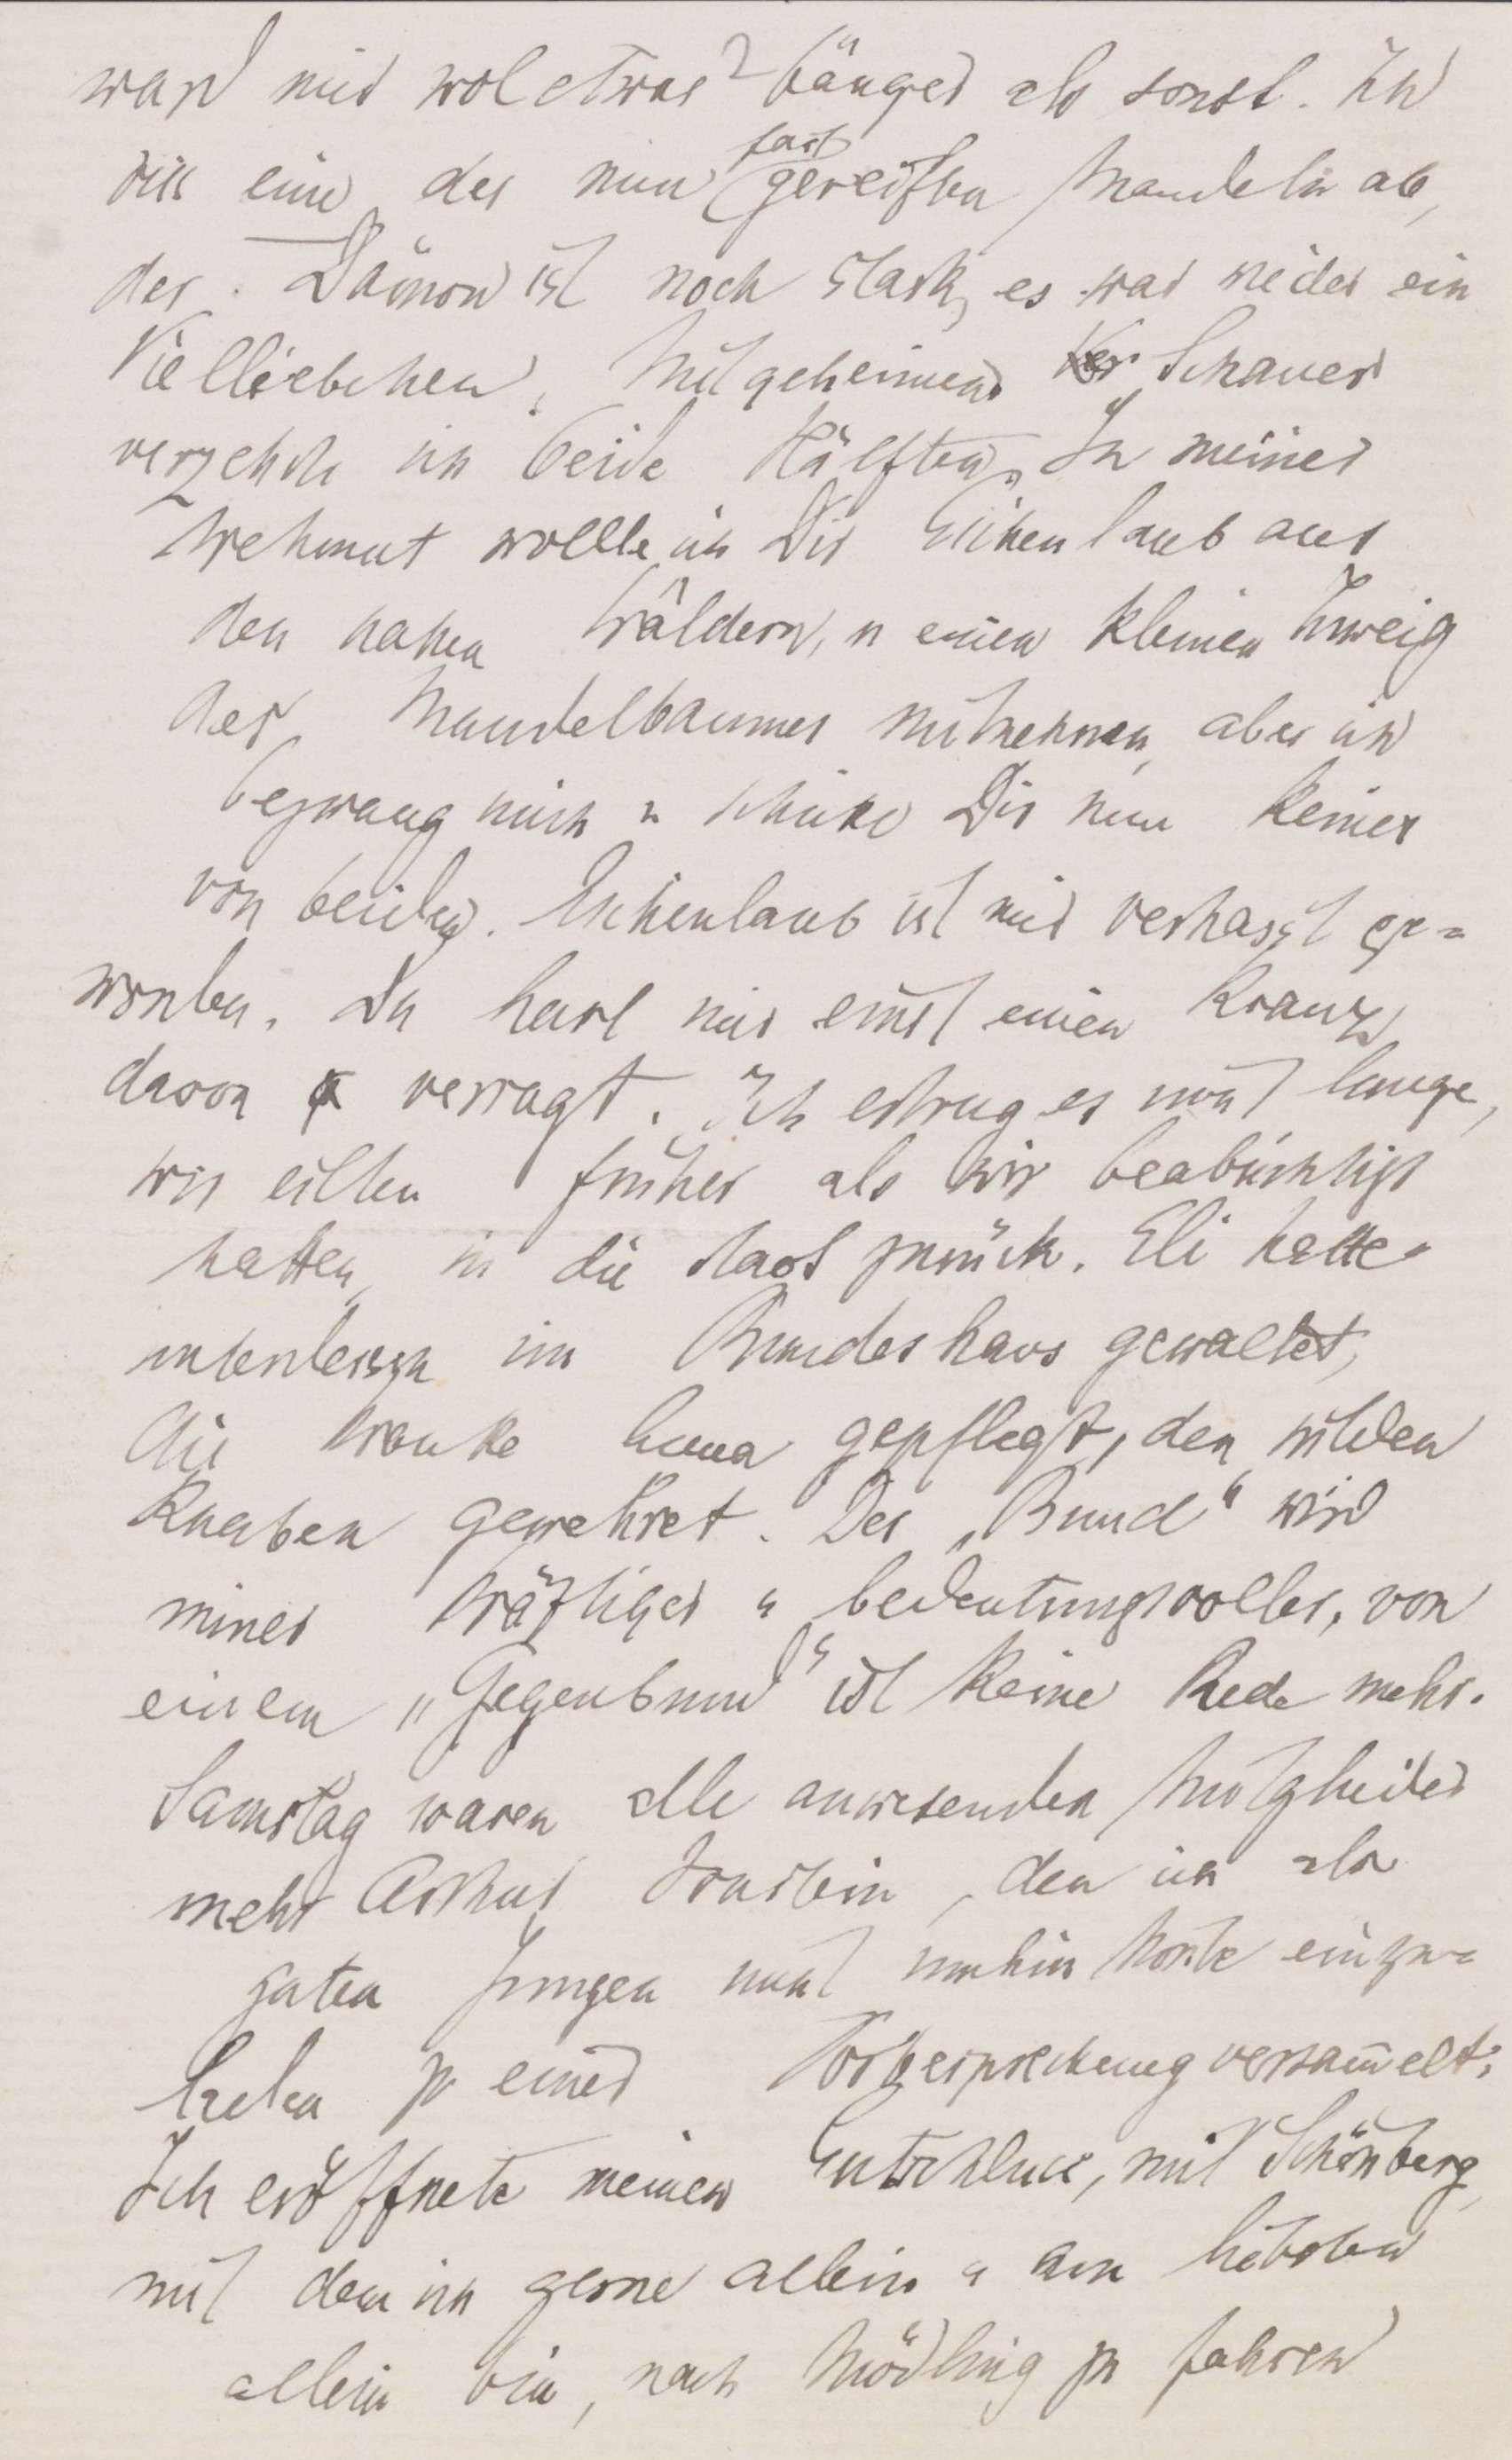 ward mir wol etwas bänger als sonst. Ich
riss eine der nun fast gereiften Mandeln ab,
der Dämon ist noch stark, es war wieder ein
Vielliebchen. Mit geheimem Schauer
verzehrte ich beide Hälften. In meiner
Wehmut wollte ich Dir Eichenlaub aus
den nahen Wäldern, u einen kleinen Zweig
des Mandelbaumes mitnehmen, aber ich
bezwang mich u schicke Dir nun keines
von beiden. Eichenlaub ist mir verhasst ge=
worden. Du hast mir einst einen Kranz
davon versagt. Ich ertrug es nicht lange,
wir eilten früher als wir beabsichtigt
hatten, in die Stadt zurück. Eli hatte
unterdessen im Bundeshaus gewaltet,
die kranke gepflegt, den wilden
Knaben gewehret. Der „Bund“ wird
immer kräftiger u bedeutungsvoller, von
einem „Gegenbund“ ist keine Rede mehr.
Samstag waren alle anwesenden Mitglieder
mehr Arthur, den ich als
guten Jungen nicht umhin konnte einzu=
laden zu einer Vorbesprechung versam̄elt:
Ich eröffnete meinen Entschluss, mit Schönberg,
mit dem ich gerne allein u am liebsten
allein bin, nach Mödling zu fahren